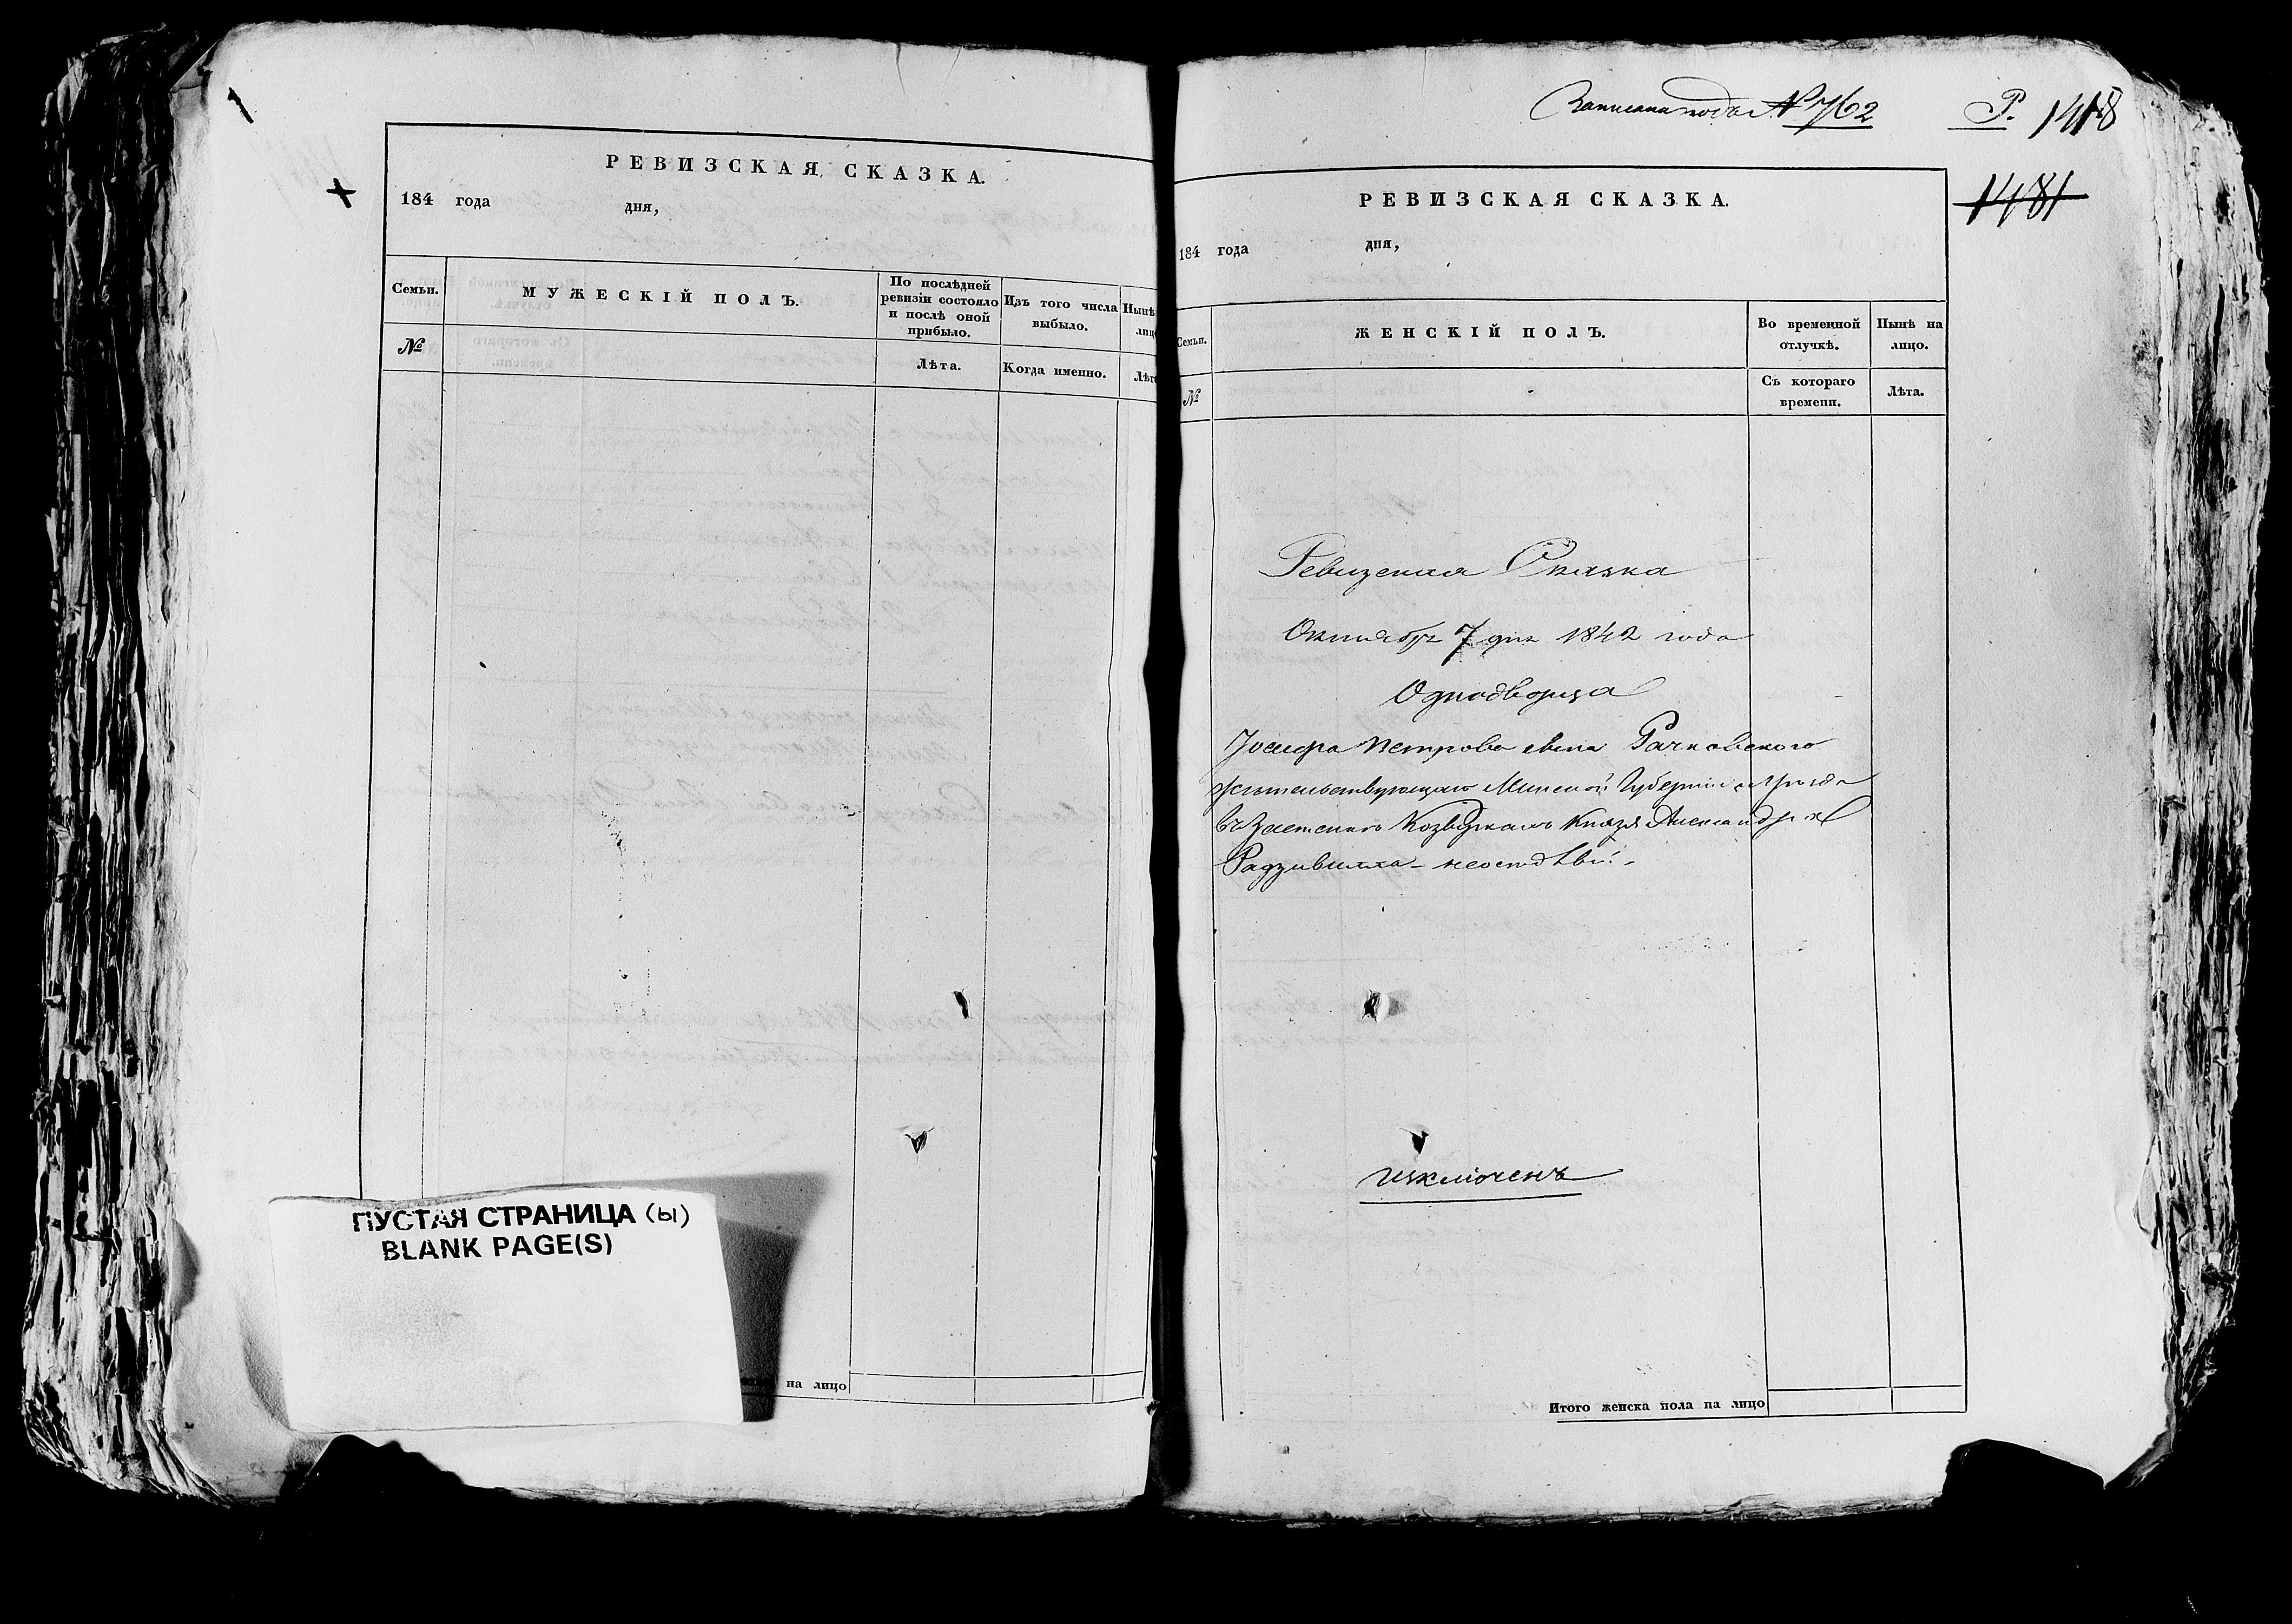 РЕВИЗСКАЯ СКАЗКА.
184 года дня,
Семьи. МУЖЕСКІЙ ПОЛЪ. По послѣдней ревизіи состояло и послѣ оной прибыло. Изъ того числа выбыло. Нынѣ
№ Лѣта. Когда именно.
ПУСТАЯ СТРАНИЦА (ы)
BLANK PAGE(S)
на лицо
Записана подъ № 762 Р. 1418
1481
РЕВИЗСКАЯ СКАЗКА.
184 года дня,
Семьи. ЖЕНСКІЙ ПОЛЪ. Во временной отлучкѣ. Нынѣ на лицо.
№ Съ котораго времени. Лѣта.
Ревизская Сказка
Октября 7 дня 1842 года
Однодворца
Іосифа Петрова сына Рачковского
жительствующаго Минской Губерніи и уезда
въ застенкѣ Князя Александра
Радзивилла
изключенъ
Итого женска пола на лицо